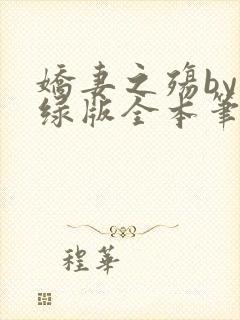 嬌妻之殤by
绿版全本筆
程華